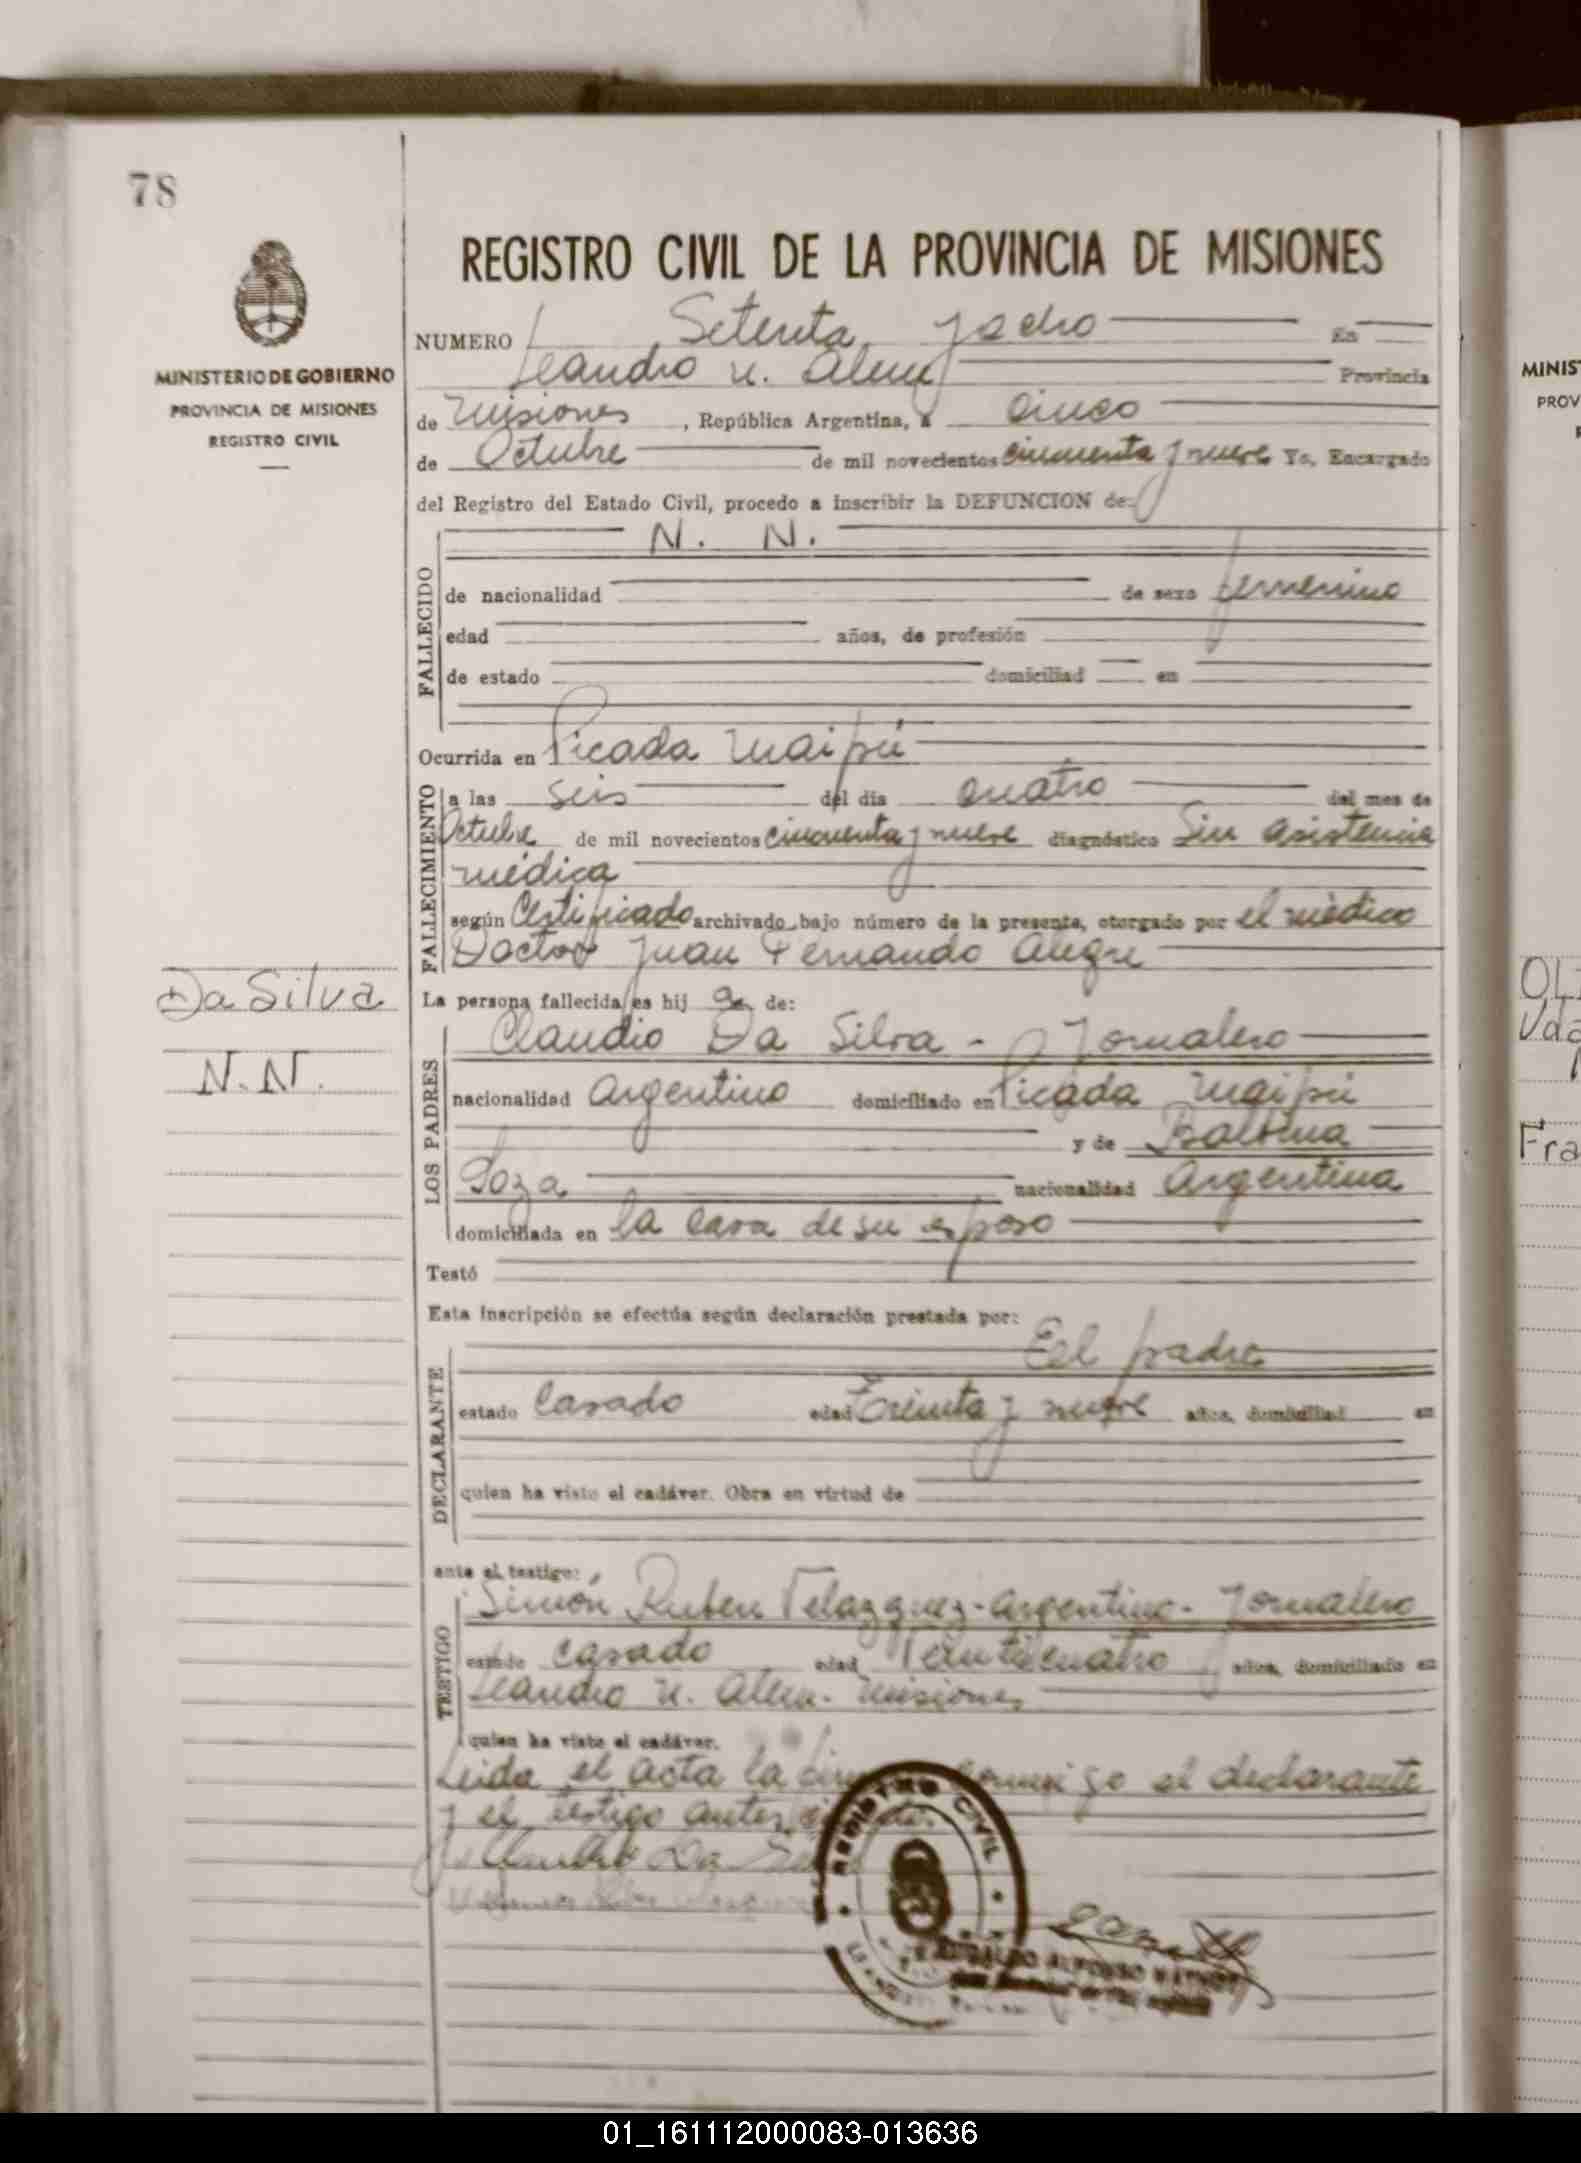 78
REGISTRO CIVIL DE LA PROVINCIA DE MISIONES
MINISTERIO DE GOBIERNO
PROVINCIA DE MISIONES
REGISTRO CIVIL
NUMERO Setenta y ocho En
Leandro N. Alem Provincia
de Misiones, República Argentina, a cinco
de Octubre de mil novecientos cincuenta y nueve Yo, Encargado
del Registro del Estado Civil, procedo a inscribir la DEFUNCION de:
N. N.
FALLECIDO
de nacionalidad de sexo femenino
edad años, de profesión
de estado domiciliad en
Ocurrida en Picada Maipú
FALLECIMIENTO
a las seis del dia cuatro del mes de
Octubre de mil novecientos cincuenta y nueve diagnóstico Sin asistencia
médica
según Certificado archivado bajo número de la presente, otorgado por el médico
Doctor Juan Fernando Alegre
Da Silva
N. N.
La persona fallecida es hij a de:
LOS PADRES
Claudio Da Silva - Jornalero
nacionalidad Argentino domiciliado en Picada Maipú
y de Balbina
Soza nacionalidad Argentina
domiciliada en la casa de su esposo
Testó
Esta inscripción se efectúa según declaración prestada por:
DECLARANTE
Eel padre
estado Casado edad Treinta y nueve años, domiciliad en
quien ha visto el cadáver. Obra en virtud de
ante el testigo:
TESTIGO
Simón Ruben Velazquez - Argentino - Jornalero
estado Casado edad Veinticuatro años, domiciliado en
Leandro N. Alem - Misiones
quien ha visto el cadáver.
Leida el acta la conmigo el declarante
y el testigo antes
Claudio Da
REGISTRO CIVIL
ALFONSO
MINIS
PROV
OL
Vda
Fra
01_161112000083-013636